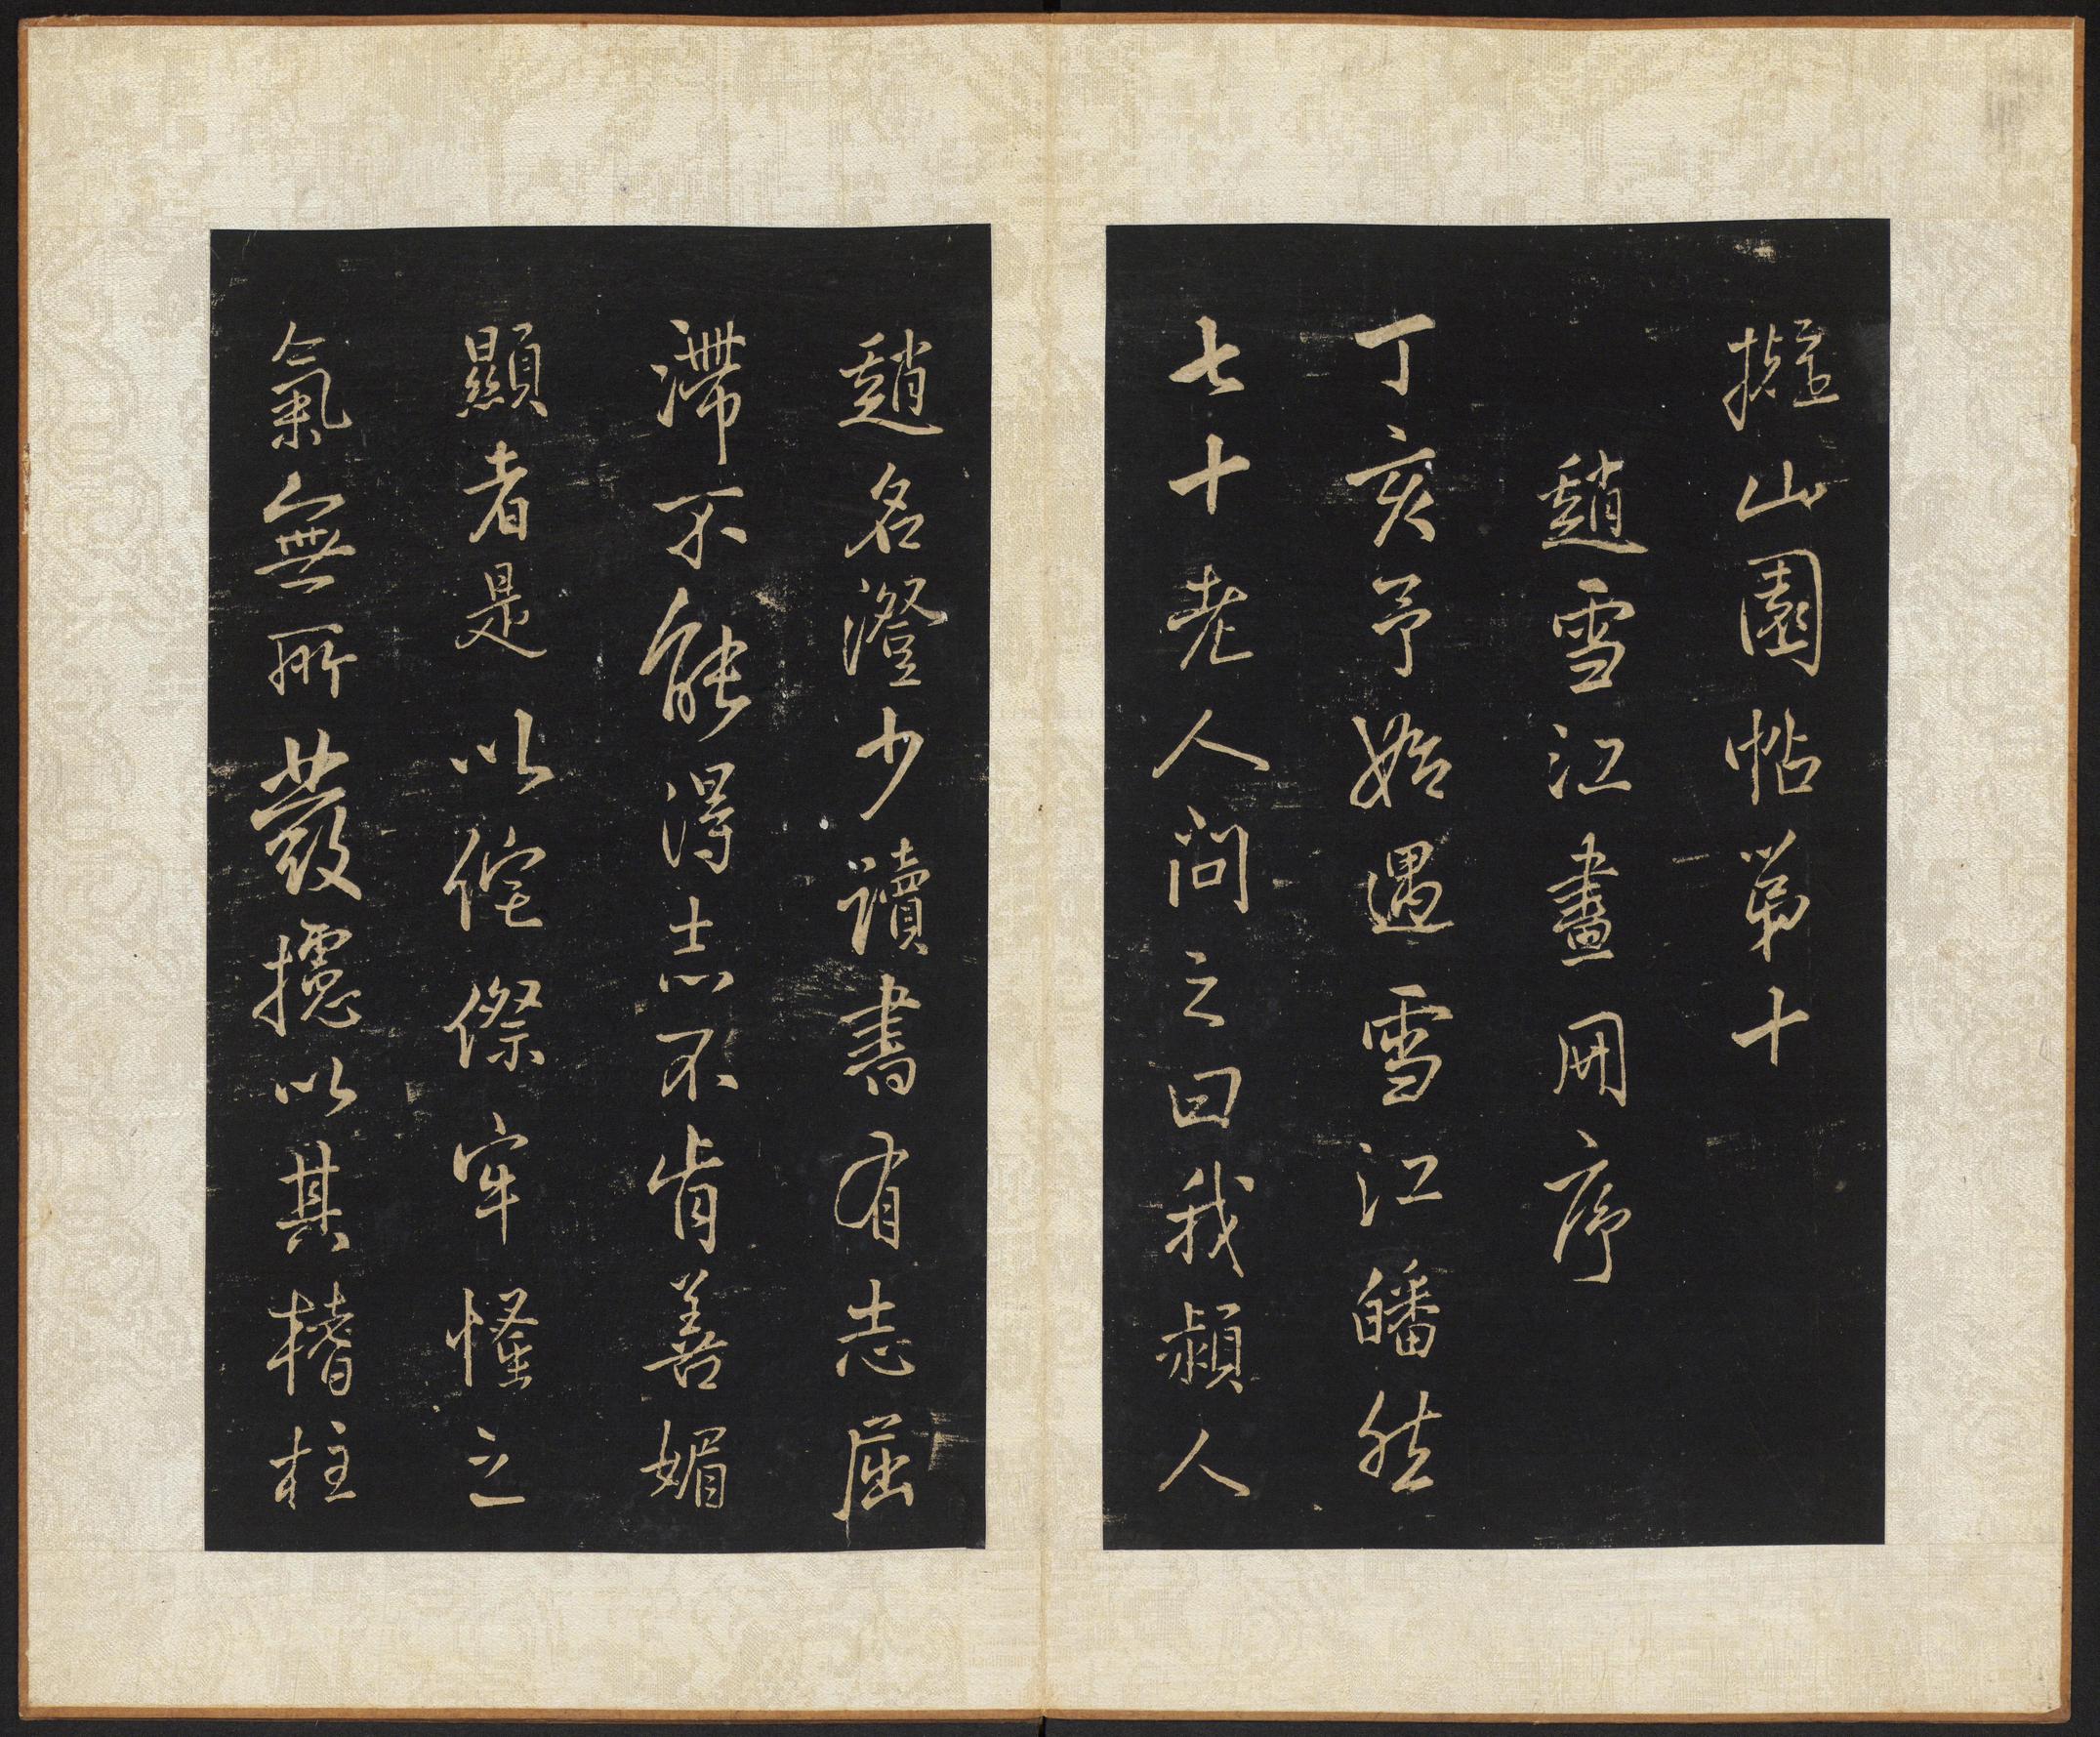 擬山園帖第十
趙雪江畫冊序
丁亥予始遇雪江皤然
七十老人問之曰我潁人
趙名澄少讀書有志屈
滯不能得志不肯善媚
顯者是以侘傺牢慅之
氣無所發攄以其榰柱